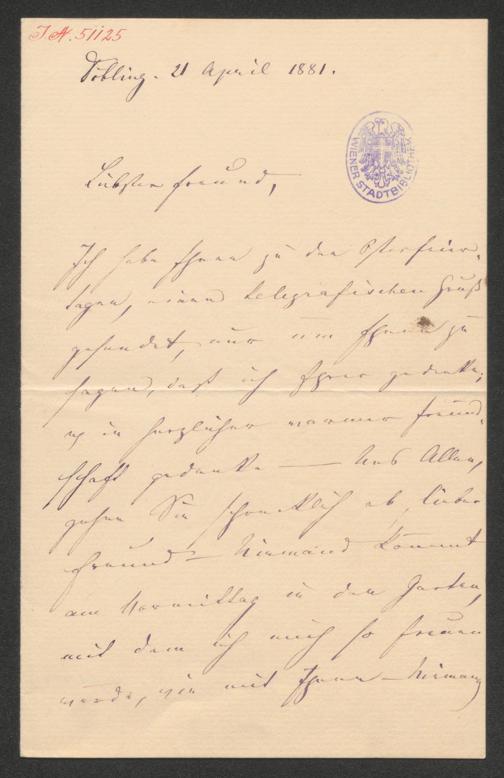 I.N. 51125
Döbling. 21 April 1881.
WIENER STADTBIBLIOTHEK
Liebster Freund,
Ich habe Ihnen zu den Osterfeier-
tagen, einen telegrafischen Gruß
gesendet, nur um Ihnen zu
sagen, daß ich Ihrer gedenke,
in herzlicher warmer Freund-
schaft gedenke — Uns Allen,
gehen Sie schrecklich ab, lieber
Freund — Niemand kommt
am Vormittag in den Garten,
mit dem ich mich so freuen
würde, wie mit Ihnen — Niemand